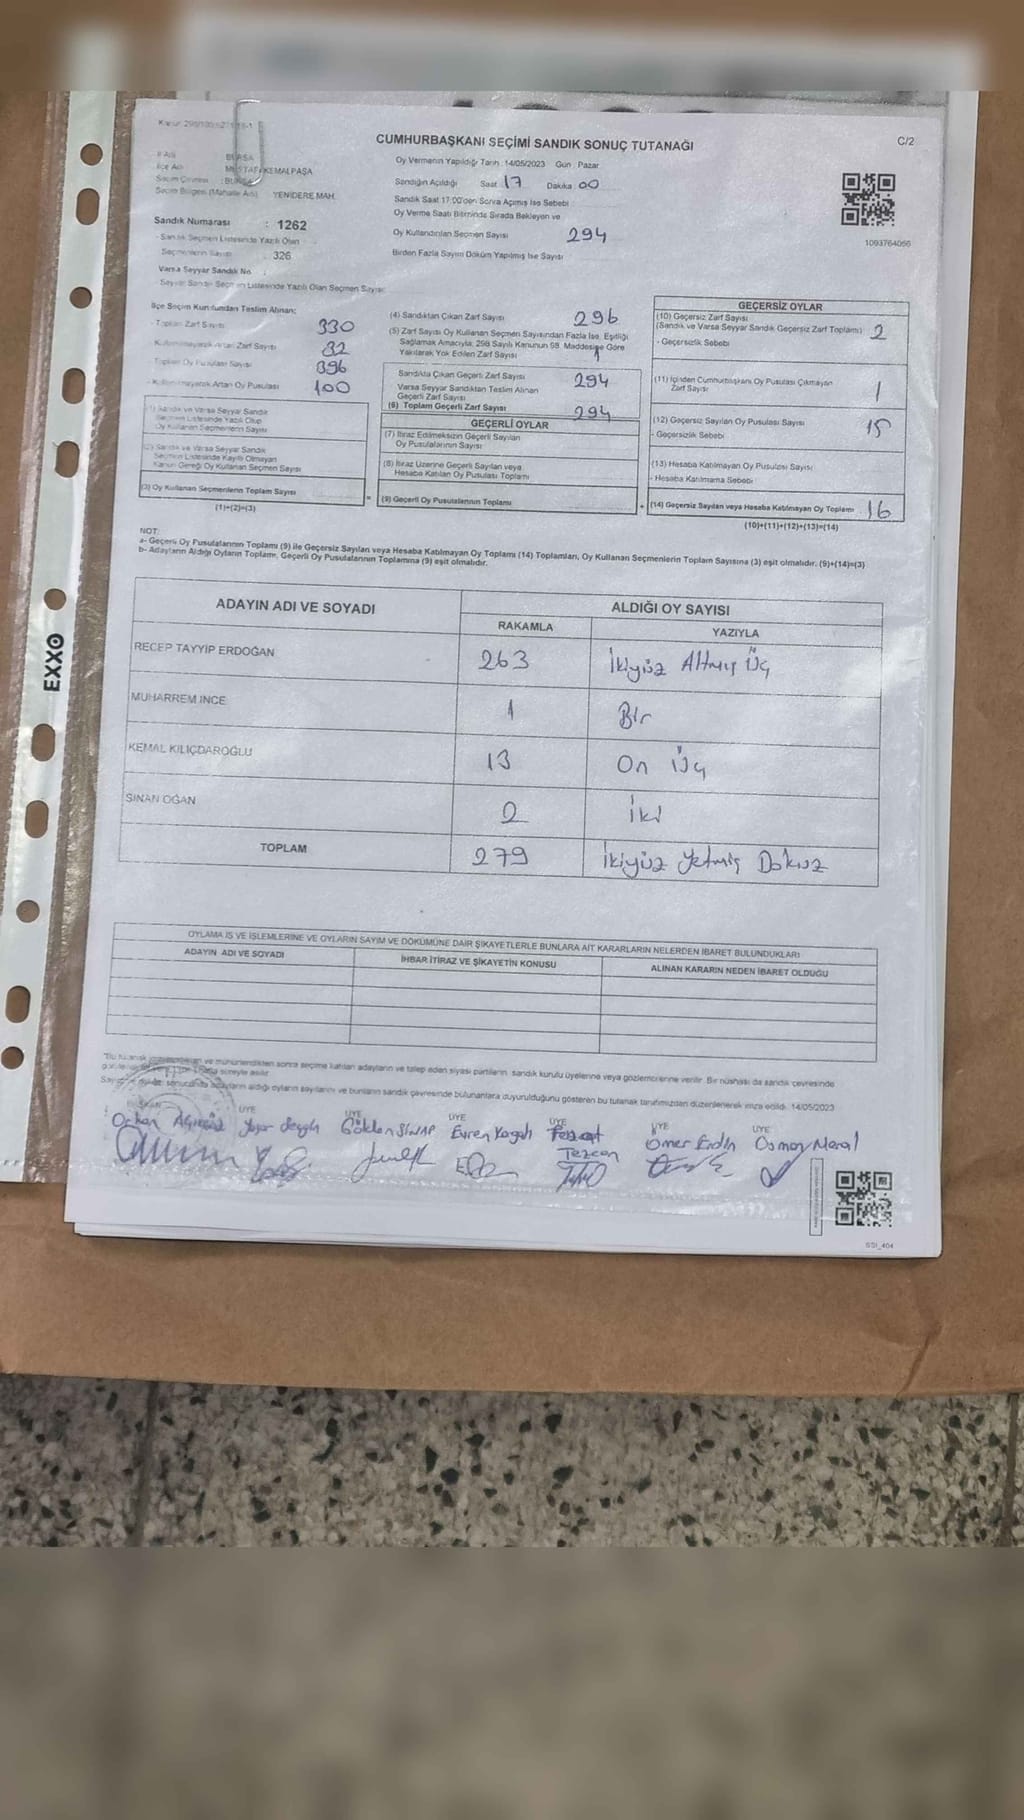 C/2
CUMHURBAŞKANI SEÇİMİ SANDIK SONUÇ TUTANAĞI
İl Adı BURSA
İlçe Adı MUSTAFAKEMALPAŞA
Seçim Çevresi : BURSA
Seçim Bölgesi (Mahalle Adı) YENİDERE MAH.
Sandık Numarası : 1262
- Sandık Seçmen Listesinde Yazılı Olan
Seçmenlerin Sayısı : 326
Varsa Seyyar Sandık No
- Seyyar Sandık Seçmen Listesinde Yazılı Olan Seçmen Sayısı:
Oy Vermenin Yapıldığı Tarih : 14/05/2023 Gün : Pazar
Sandığın Açıldığı Saat 17 Dakika 00
Sandık Saat 17:00'den Sonra Açımış İse Sebebi
Oy Verme Saati Bitiminde Sırada Bekleyen ve
Oy Kullandırılan Seçmen Sayısı 294
Birden Fazla Sayım Döküm Yapılmış İse Sayısı
1093764066
İlçe Seçim Kurulundan Teslim Alınan;
- Toplam Zarf Sayısı 330
- Kullanılmayarak Artan Zarf Sayısı 32
- Toplam Oy Pusulası Sayısı 396
- Kullanılmayarak Artan Oy Pusulası 100
(1) Sandık ve Varsa Seyyar Sandık
Seçmen Listesinde Yazılı Olup
Oy Kullanan Seçmenlerin Sayısı
(2) Sandık ve Varsa Seyyar Sandık
Seçmen Listesinde Kayıtlı Olmayan
Kanun Gereği Oy Kullanan Seçmen Sayısı
(3) Oy Kullanan Seçmenlerin Toplam Sayısı
(1)+(2)=(3)
(4) Sandıktan Çıkan Zarf Sayısı 296
(5) Zarf Sayısı Oy Kullanan Seçmen Sayısından Fazla İse, Eşitliği
Sağlamak Amacıyla; 298 Sayılı Kanunun 98. Maddesine Göre
Yakılarak Yok Edilen Zarf Sayısı
Sandıkta Çıkan Geçerli Zarf Sayısı 294
Varsa Seyyar Sandıktan Teslim Alınan
Geçerli Zarf Sayısı
(6) Toplam Geçerli Zarf Sayısı 294
GEÇERLİ OYLAR
(7) İtiraz Edilmeksizin Geçerli Sayılan
Oy Pusulalarının Sayısı
(8) İtiraz Üzerine Geçerli Sayılan veya
Hesaba Katılan Oy Pusulası Toplamı
=
(9) Geçerli Oy Pusulalarının Toplamı
+
GEÇERSİZ OYLAR
(10) Geçersiz Zarf Sayısı
(Sandık ve Varsa Seyyar Sandık Geçersiz Zarf Toplamı) 2
- Geçersizlik Sebebi
(11) İçinden Cumhurbaşkanı Oy Pusulası Çıkmayan
Zarf Sayısı 1
(12) Geçersiz Sayılan Oy Pusulası Sayısı 15
- Geçersizlik Sebebi
(13) Hesaba Katılmayan Oy Pusulası Sayısı
- Hesaba Katılmama Sebebi
(14) Geçersiz Sayılan veya Hesaba Katılmayan Oy Toplamı 16
(10)+(11)+(12)+(13)=(14)
NOT:
a- Geçerli Oy Pusulalarının Toplamı (9) ile Geçersiz Sayılan veya Hesaba Katılmayan Oy Toplamı (14) Toplamları, Oy Kullanan Seçmenlerin Toplam Sayısına (3) eşit olmalıdır. (9)+(14)=(3)
b- Adayların Aldığı Oyların Toplamı, Geçerli Oy Pusulalarının Toplamına (9) eşit olmalıdır.
ADAYIN ADI VE SOYADI ALDIĞI OY SAYISI
RAKAMLA YAZIYLA
RECEP TAYYİP ERDOĞAN 263 İkiyüz Altmış Üç
MUHARREM İNCE 1 Bir
KEMAL KILIÇDAROĞLU 13 On Üç
SİNAN OĞAN 2 İki
TOPLAM 279 İkiyüz Yetmiş Dokuz
OYLAMA İŞ VE İŞLEMLERİNE VE OYLARIN SAYIM VE DÖKÜMÜNE DAİR ŞİKAYETLERLE BUNLARA AİT KARARLARIN NELERDEN İBARET BULUNDUKLARI
ADAYIN ADI VE SOYADI İHBAR İTİRAZ VE ŞİKAYETİN KONUSU ALINAN KARARIN NEDEN İBARET OLDUĞU
ve mühürlendikten sonra seçime katılan adayların ve talep eden siyasi partilerin, sandık kurulu üyelerine veya gözlemcilerine verilir. Bir nüshası da sandık çevresinde
süreyle asılır.
sonucunda adayların aldığı oyların sayılarını ve bunların sandık çevresinde bulunanlara duyurulduğunu gösteren bu tutanak tarafımızdan düzenlenerek imza edildi. 14/05/2023
BAŞKAN ÜYE ÜYE ÜYE ÜYE ÜYE ÜYE
Orhan Gökhan Evren Tezcan Ömer Erdin Osman Meral
SSI_404
EXXO